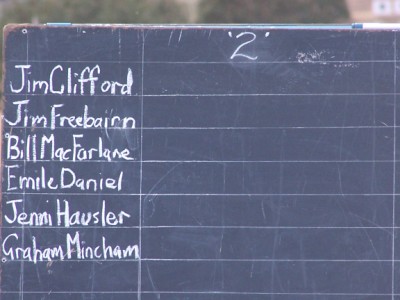 '2'
Jim Clifford
Jim Freebairn
Bill MacFarlane
Emile Daniel
Jenni Hausler
Graham Mincham